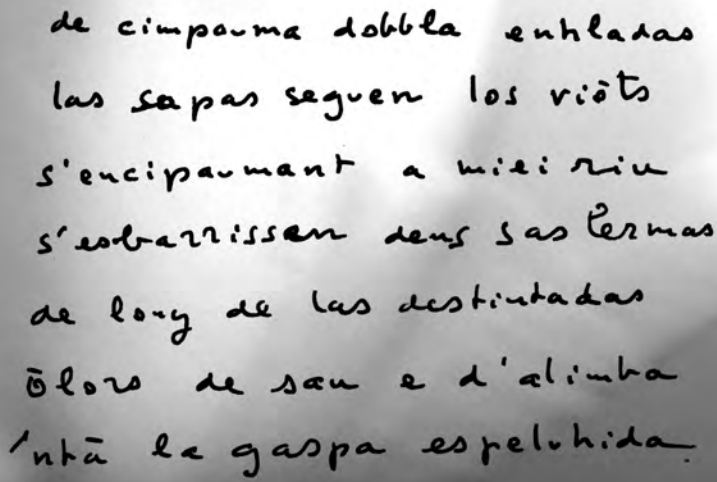 de cimpauma dobbla enhladas
las sapas seguen los viòts
s'encipaumant a miei riu
s'esbarrissen dens sas lermas
de long de las destintadas
ōlors de sau e d'alimba
'ntà la gaspa espeluhida